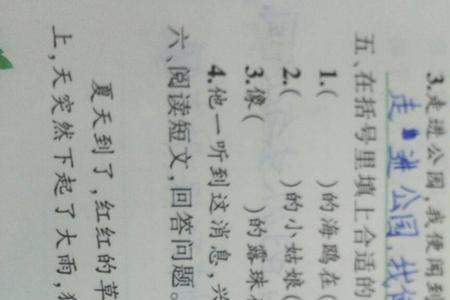 3.走进公园,我便闻到
走进公园,我
五、在括号里填上合适的
1.( )的海鸥在(
2.( )的小姑娘(
3.像( )的露珠
4.他一听到这消息,兴
六、阅读短文,回答问题。
夏天到了,红红的草
上,天突然下起了大雨,